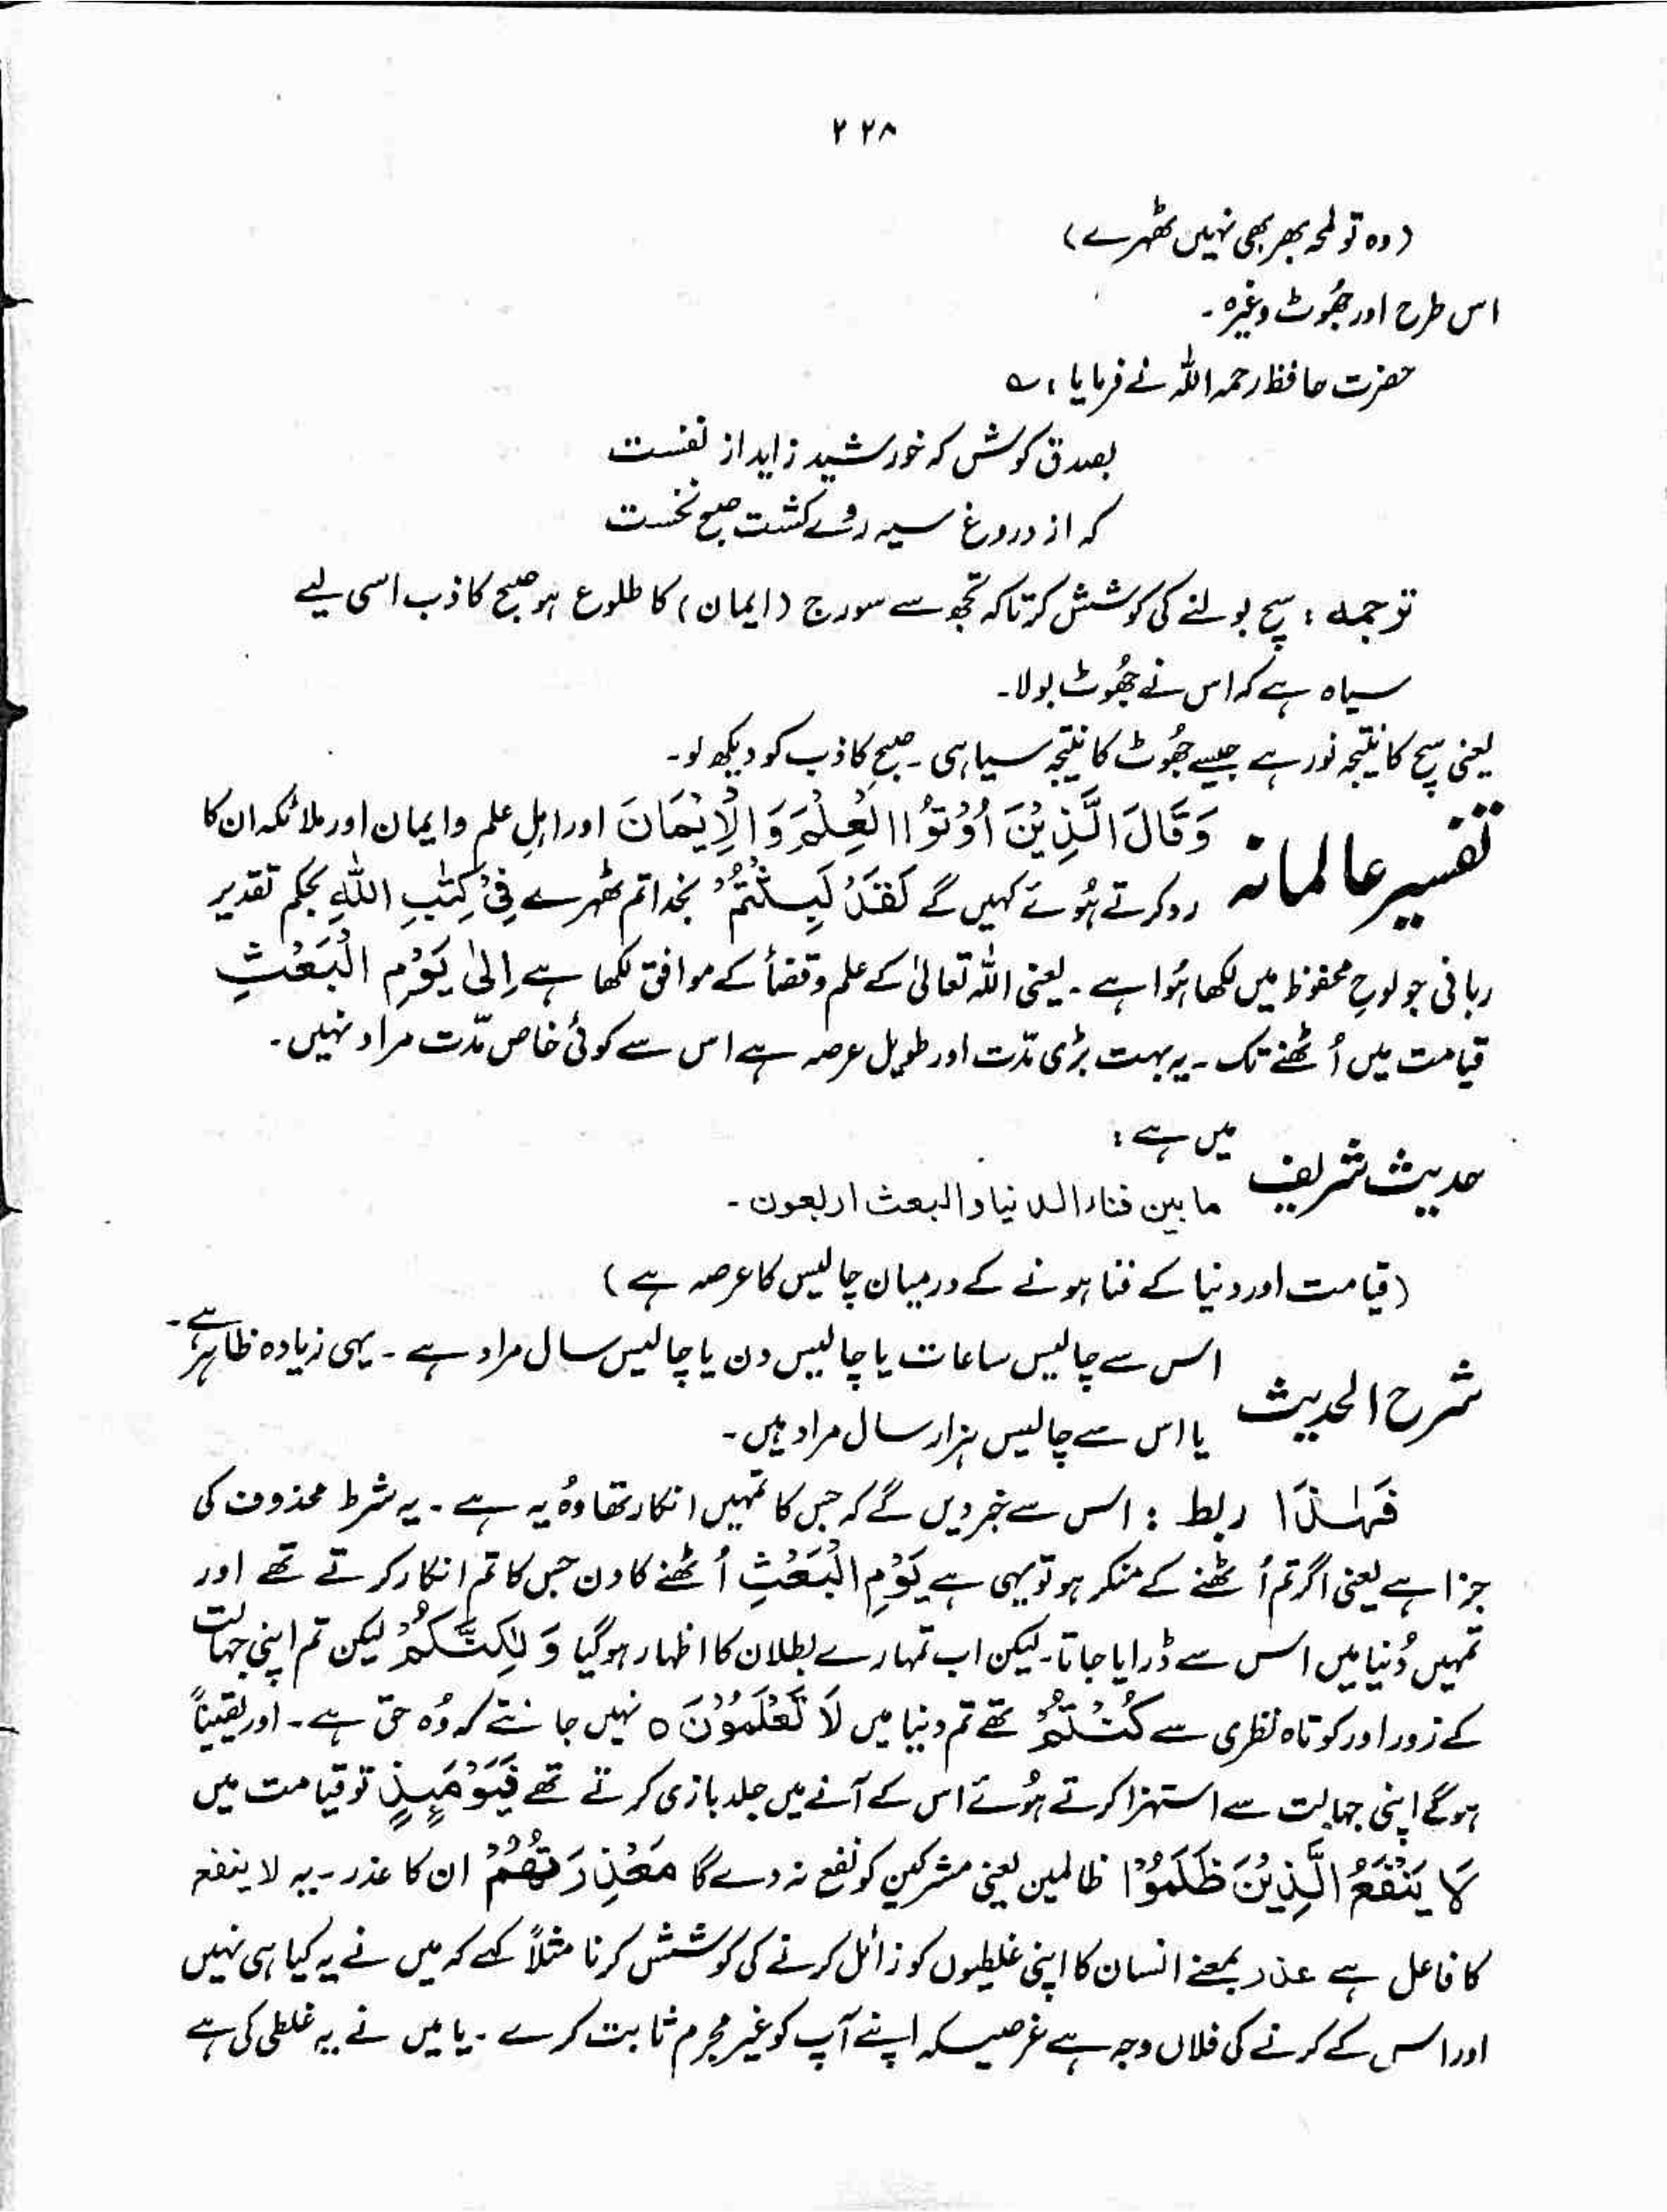 ۲۲۸
(وہ تو لمحہ بھر بھی نہیں ٹھہرے)
اس طرح اور جُھوٹ وغیرہ۔
حضرت حافظ رحمہ اللہ نے فرمایا : ؎
بصدق کوش کہ خورشید زاید از نفست
کہ از دروغ سیہ روے گشت صبح نخست
ترجمہ : سچ بولنے کی کوشش کر تاکہ تجھ سے سورج (ایمان) کا طلوع ہو صبح کاذب اسی لیے
سیاہ ہے کہ اس نے جُھوٹ بولا۔
یعنی سچ کا نتیجہ نور ہے جیسے جُھوٹ کا نتیجہ سیاہی۔ صبحِ کاذب کو دیکھ لو۔
تفسیر عالمانہ وَقَالَ الَّذِيْنَ اُوْتُوا الْعِلْمَ وَالْاِيْمَانَ اور اہلِ علم و ایمان اور ملائکہ ان کا
رد کرتے ہُوئے کہیں گے لَقَدْ لَبِثْتُمْ بخدا تم ٹھہرے فِيْ كِتٰبِ اللّٰهِ بحکم تقدیر
ربانی جو لوحِ محفوظ میں لکھا ہُوا ہے۔ یعنی اللہ تعالیٰ کے علم و قضأ کے موافق لکھا ہے اِلٰى يَوْمِ الْبَعْثِ
قیامت میں اُٹھنے تک۔ یہ بہت بڑی مدّت اور طویل عرصہ ہے اس سے کوئی خاص مدّت مراد نہیں۔
حدیث شریف میں ہے :
ما بین فناء الدنیا والبعث اربعون۔
(قیامت اور دنیا کے فنا ہونے کے درمیان چالیس کا عرصہ ہے)
شرح الحدیث اس سے چالیس ساعات یا چالیس دن یا چالیس سال مراد ہے۔ یہی زیادہ ظاہر ہے۔
یا اس سے چالیس ہزار سال مراد ہیں۔
فَهٰذَا ربط : اس سے خبر دیں گے کہ جس کا تمہیں انکار تھا وُہ یہ ہے۔ یہ شرط محذوف کی
جزا ہے یعنی اگر تم اُٹھنے کے منکر ہو تو یہی ہے يَوْمِ الْبَعْثِ اُٹھنے کا دن جس کا تم انکار کرتے تھے اور
تمہیں دُنیا میں اس سے ڈرایا جاتا۔ لیکن اب تمہارے بطلان کا اظہار ہو گیا وَ لٰكِنَّكُمْ لیکن تم اپنی جہالت
کے زور اور کوتاہ نظری سے كُنْتُمْ تھے تم دنیا میں لَا تَعْلَمُوْنَ ٥ نہیں جانتے کہ وُہ حق ہے۔ اور یقیناً
ہوگے اپنی جہالت سے استہزا کرتے ہُوئے اس کے آنے میں جلد بازی کرتے تھے فَيَوْمَئِذٍ تو قیامت میں
لَا يَنْفَعُ الَّذِيْنَ ظَلَمُوْا ظالمین یعنی مشرکین کو نفع نہ دے گا مَعْذِرَتُهُمْ ان کا عذر۔ یہ لا ینفع
کا فاعل ہے عذر بمعنے انسان کا اپنی غلطیوں کو زائل کرنے کی کوشش کرنا مثلاً کہے کہ میں نے یہ کیا ہی نہیں
اور اس کے کرنے کی فلاں وجہ ہے غرضیکہ اپنے آپ کو غیر مجرم ثابت کرے۔ یا میں نے یہ غلطی کی ہے